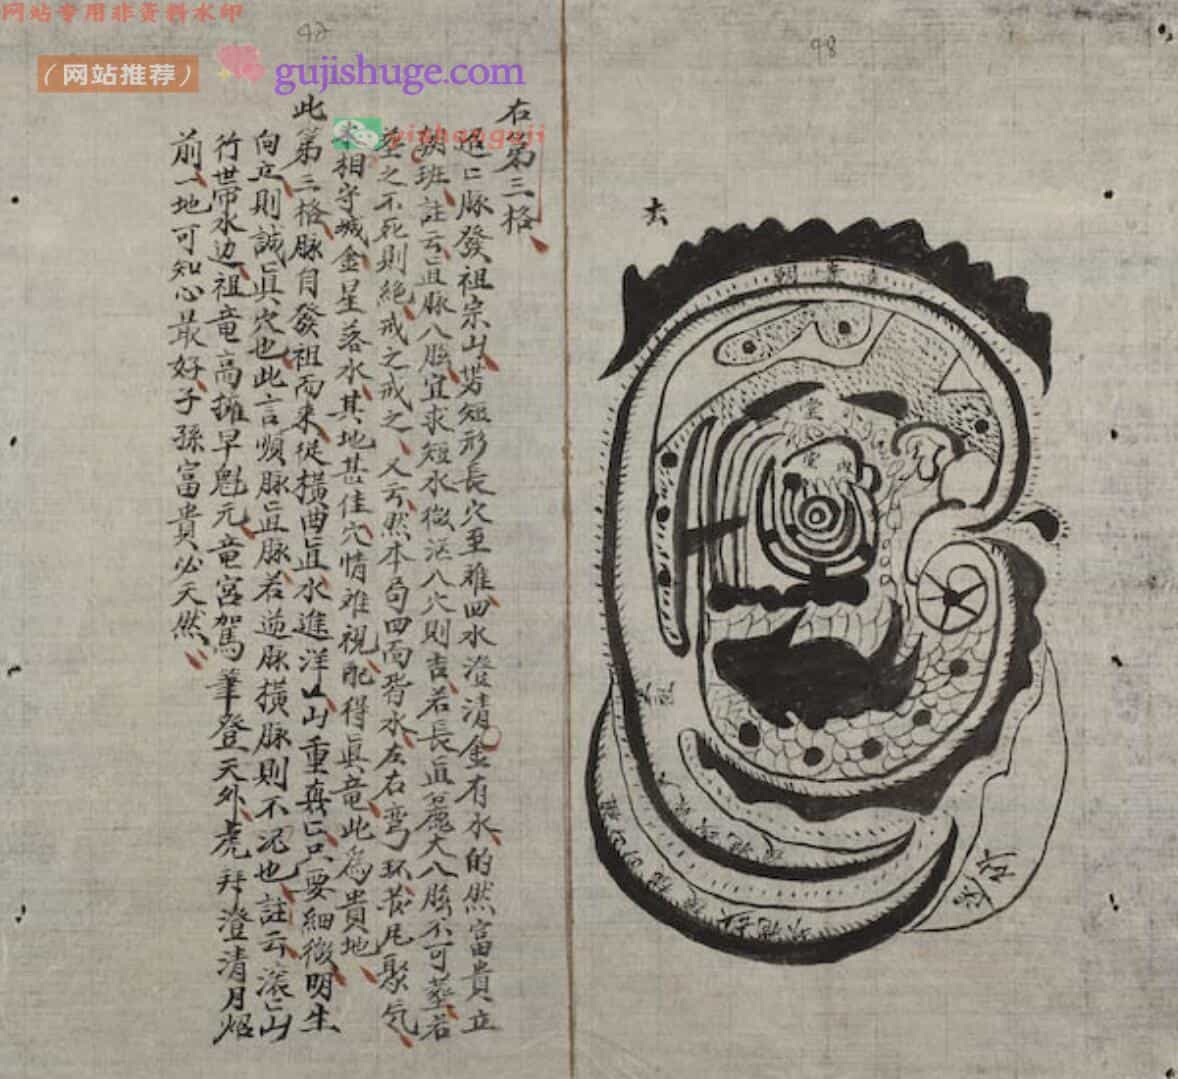 网站专用非资料水印
（网站推荐）
gujishuge.com
yishanguji
98
去
右第三格
迢〻脉發祖宗山势短形長穴至难四水澄清金有水的然富貴立
朝班註云直脉八胎宜求短水微泓八穴則吉若長直麄大八胎不可塟若
塟之不死則絶戒之戒之又云然本旬四面皆水左右弯环長尾聚气
相守城金星落水其地甚佳穴情难視配得真竜此為貴地
此第三格脉自發祖而来從横曲直水進洋〻山重真〻只要細微明生
向立則誠真穴也此言順脉直脉若逆脉横脉則不况也註云滚〻山
行世帶水边祖竜高擁早魁元竜宮駕筆登天外虎拜澄清月炤
前一地可知心最好子孫富貴必天然
堂
堂
内